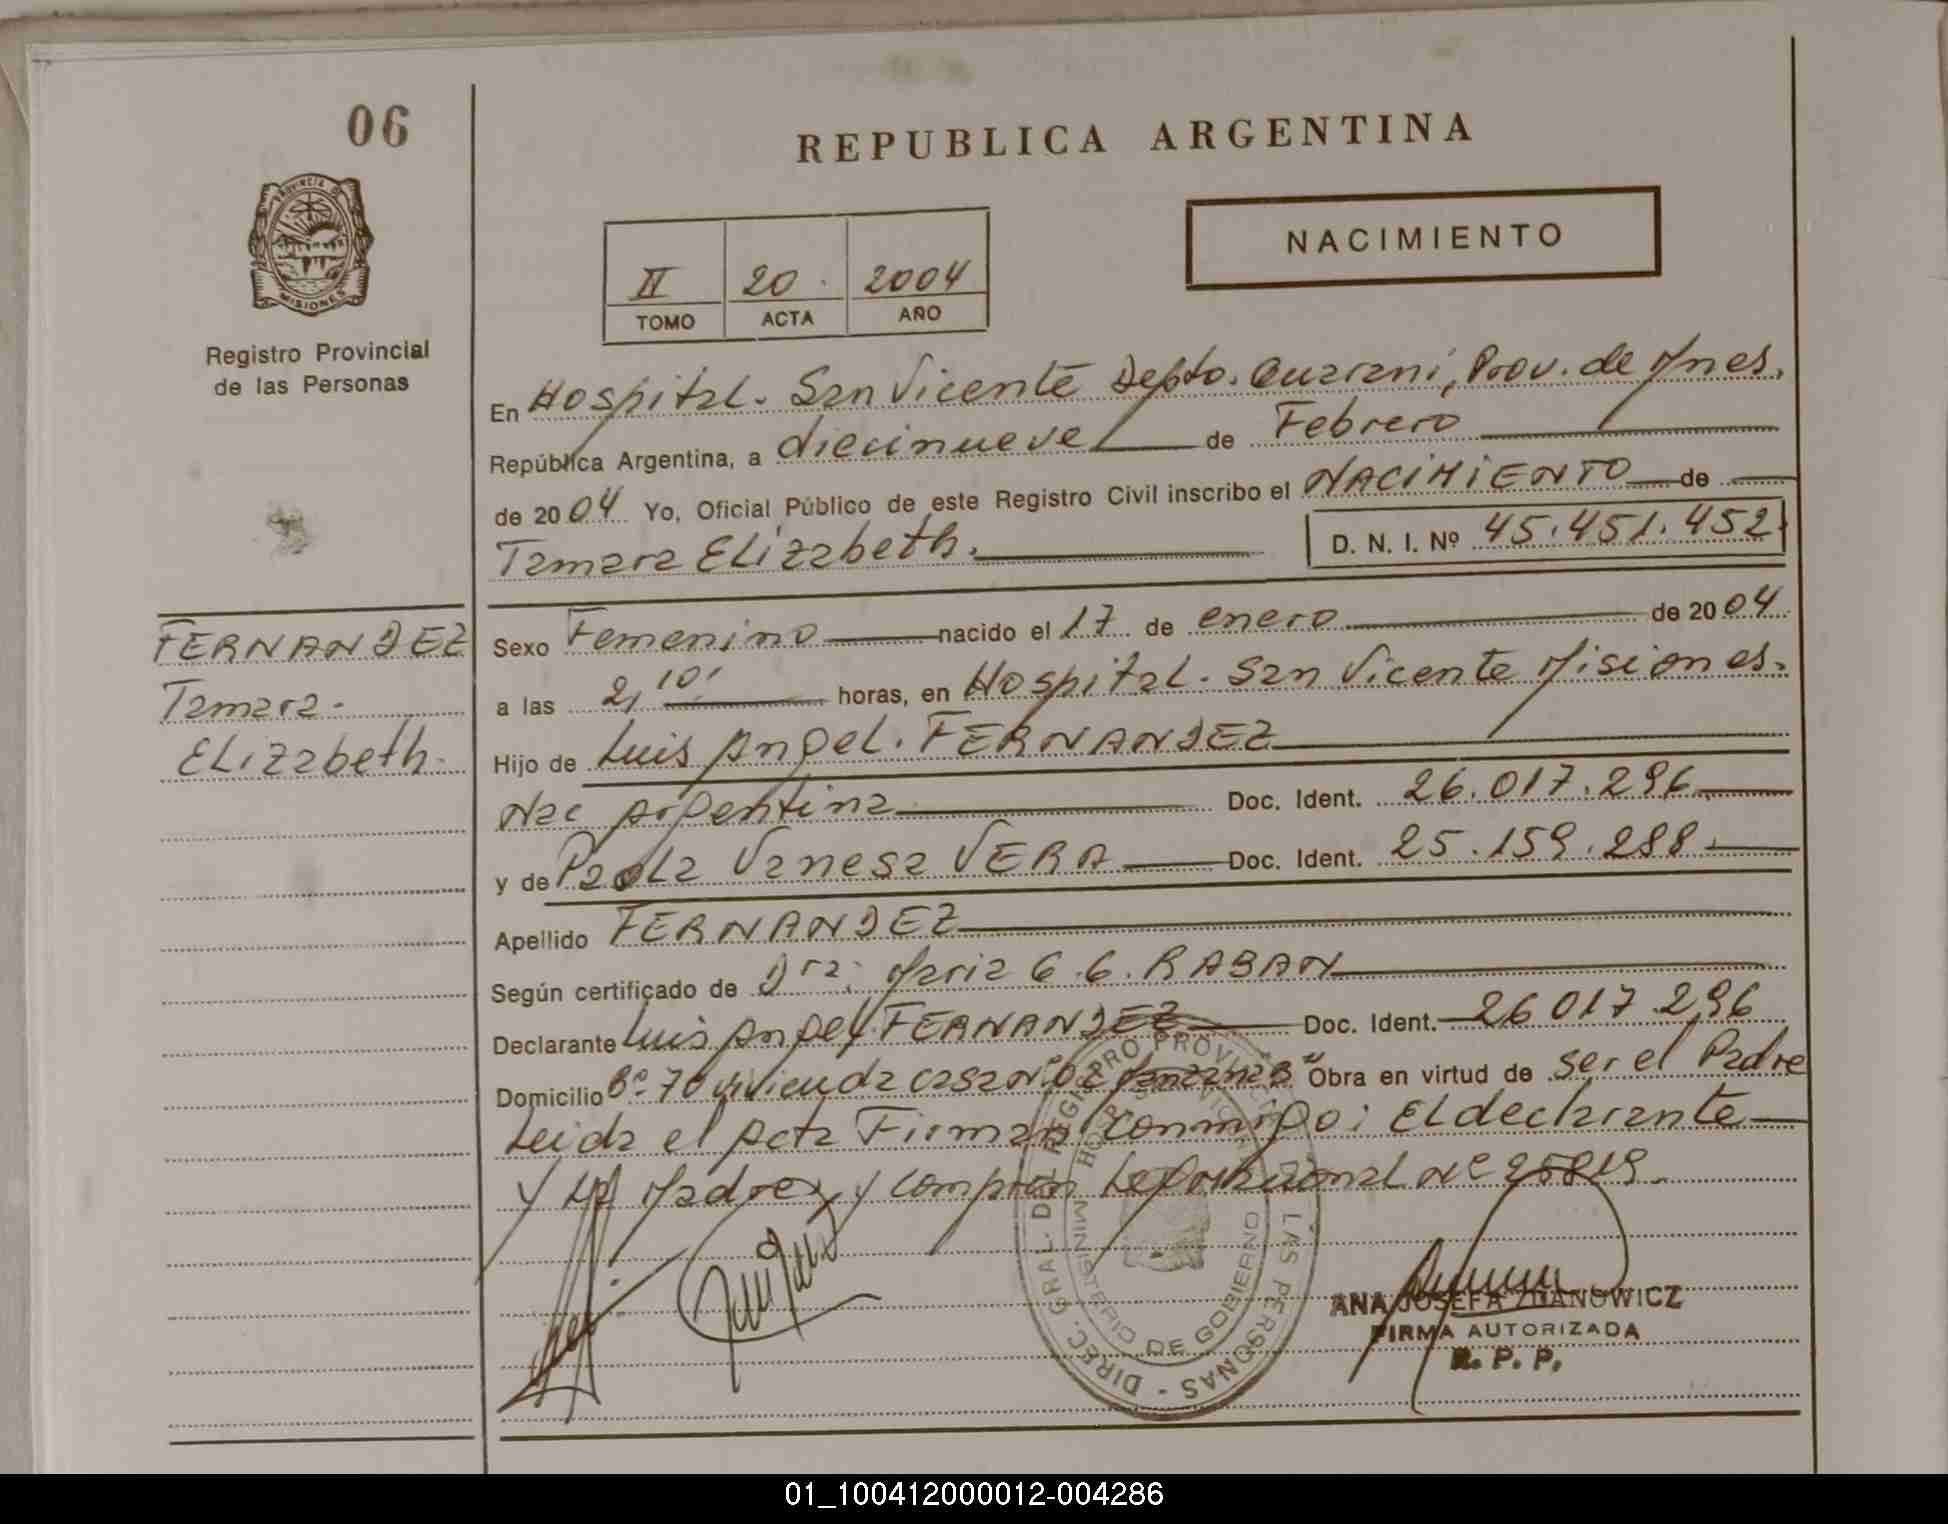 06
REPUBLICA ARGENTINA
PROVINCIA DE
MISIONES
Registro Provincial
de las Personas
II 20 2004
TOMO ACTA AÑO
NACIMIENTO
En Hospital. San Vicente Depto. Guarani, Prov. de Mnes.
República Argentina, a diecinueve de Febrero
de 2004 Yo, Oficial Público de este Registro Civil inscribo el NACIMIENTO de
Tamara Elizabeth. D. N. I. Nº 45.451.452
FERNANDEZ
Tamara
Elizabeth
Sexo Femenino nacido el 17 de enero de 2004
a las 2,10' horas, en Hospital. San Vicente Misiones.
Hijo de Luis Angel. FERNANDEZ
Nac Argentina Doc. Ident. 26.017.296
y de Paola Vanesa VERA Doc. Ident. 25.159.288
Apellido FERNANDEZ
Según certificado de Dra. Maria G. G. RABAN
Declarante Luis Angel FERNANDEZ Doc. Ident. 26 017 296
Domicilio Bº 70 vivienda casa Nº 02 Manzana B" Obra en virtud de ser el Padre
Leida el Acta Firman conmigo: El declarante
y La Madre y Compron Nº 25819.
DIREC. GRAL. DEL REGISTRO PROVINCIAL DE LAS PERSONAS
MINISTERIO DE GOBIERNO
ANA JOSEFA ZDANOWICZ
FIRMA AUTORIZADA
R. P. P.
01_100412000012-004286